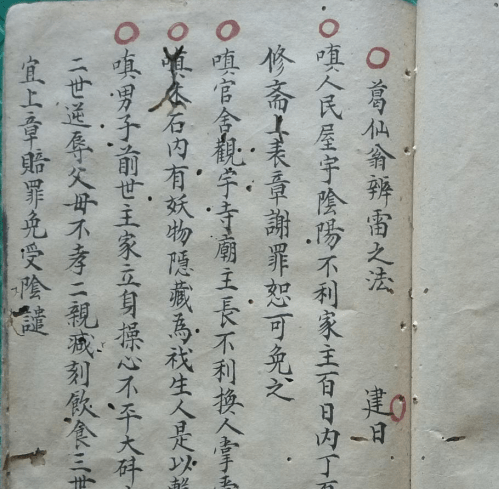 葛仙翁辨雷之法 建日
嗔人民屋宇陰陽不利家主百日内丁
修斋上表章謝罪恕可免之
嗔官舍觀宇寺廟主長不利換人掌
嗔木石内有妖物隱藏為祅生人是以
嗔男子前世主家立身操心不平大斗
二世逆辱父母不孝二親减刻飲食三世
宜上章賠罪免受陰譴